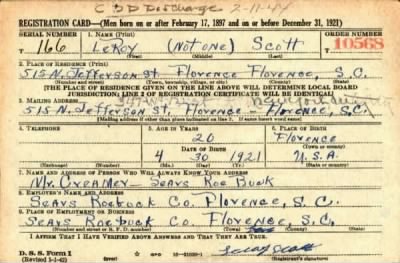 CDD Discharge 2-11-44
REGISTRATION CARD—(Men born on or after February 17, 1897 and on or before December 31, 1921)
SERIAL NUMBER 1. NAME (Print) ORDER NUMBER
T 166 LeRoy (Not one) Scott 10568
(First) (Middle) (Last)
2. PLACE OF RESIDENCE (Print)
515-N. Jefferson St. Florence Florence, S.C.
(Number and street) (Town, township, village, or city) (County) (State)
[THE PLACE OF RESIDENCE GIVEN ON THE LINE ABOVE WILL DETERMINE LOCAL BOARD
JURISDICTION; LINE 2 OF REGISTRATION CERTIFICATE WILL BE IDENTICAL]
3. MAILING ADDRESS
515-N. Jefferson St. Florence - Florence, S.C.
[Mailing address if other than place indicated on line 2. If same insert word same]
4. TELEPHONE 5. AGE IN YEARS 6. PLACE OF BIRTH
20 Florence
DATE OF BIRTH (Town or county)
4 30 1921 U.S.A.
(Exchange) (Number) (Mo.) (Day) (Yr.) (State or country)
7. NAME AND ADDRESS OF PERSON WHO WILL ALWAYS KNOW YOUR ADDRESS
Mr. Creamer - Sears Roe Buck
8. EMPLOYER'S NAME AND ADDRESS
Sears Roebuck Co. Florence, S.C.
9. PLACE OF EMPLOYMENT OR BUSINESS
Sears Roebuck Co. Florence, S.C.
(Number and street or R. F. D. number) (Town) (County) (State)
I AFFIRM THAT I HAVE VERIFIED ABOVE ANSWERS AND THAT THEY ARE TRUE.
D. S. S. Form 1
(Revised 1-1-42) (over) GPO
Leroy Scott